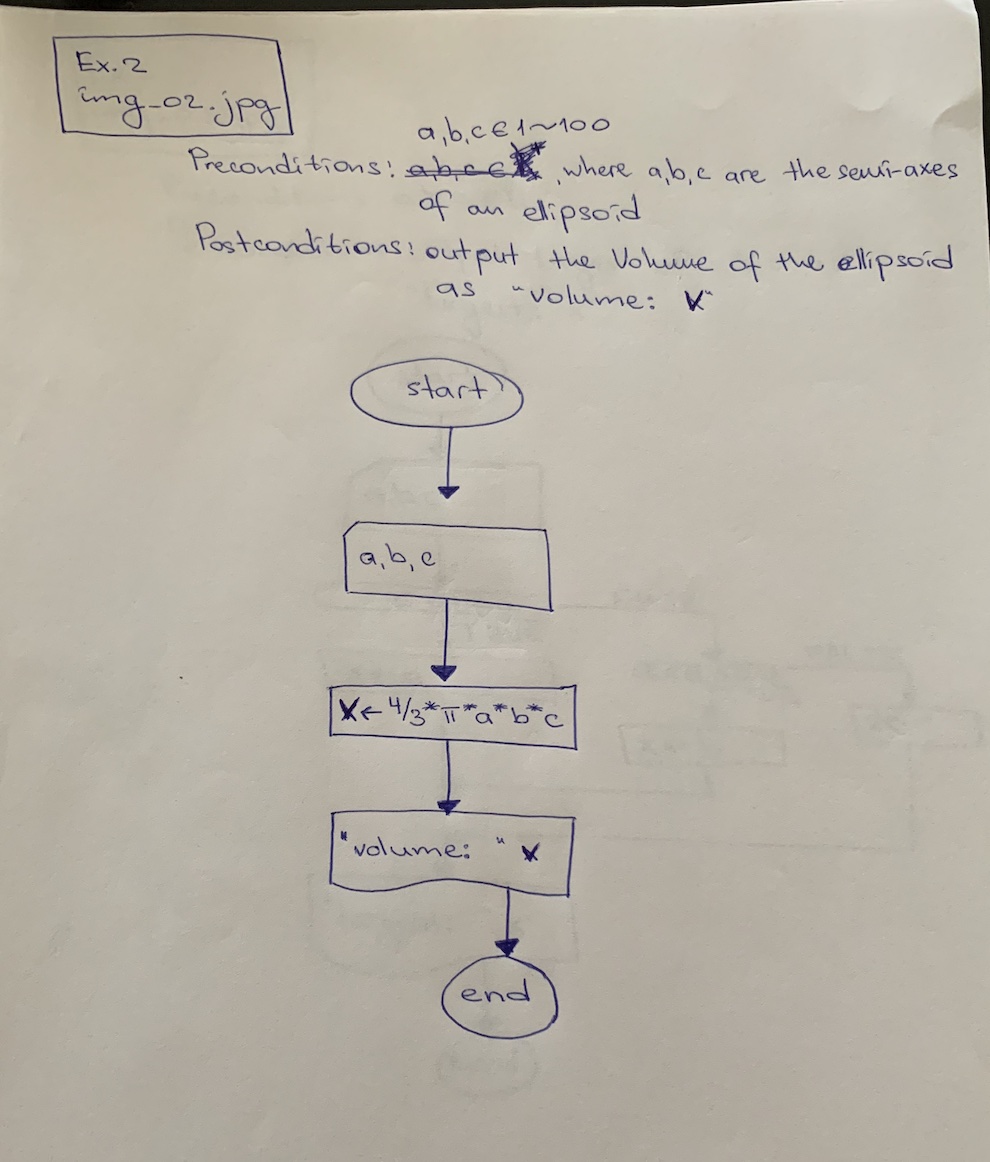 Ex.2
img_02.jpg
a,b,c ∈ 1~100
Preconditions: a,b,c ∈ , where a,b,c are the semi-axes
of an ellipsoid
Postconditions: output the Volume of the ellipsoid
as "volume: V"
start
a,b,c
V ← 4/3*π*a*b*c
"volume: " V
end